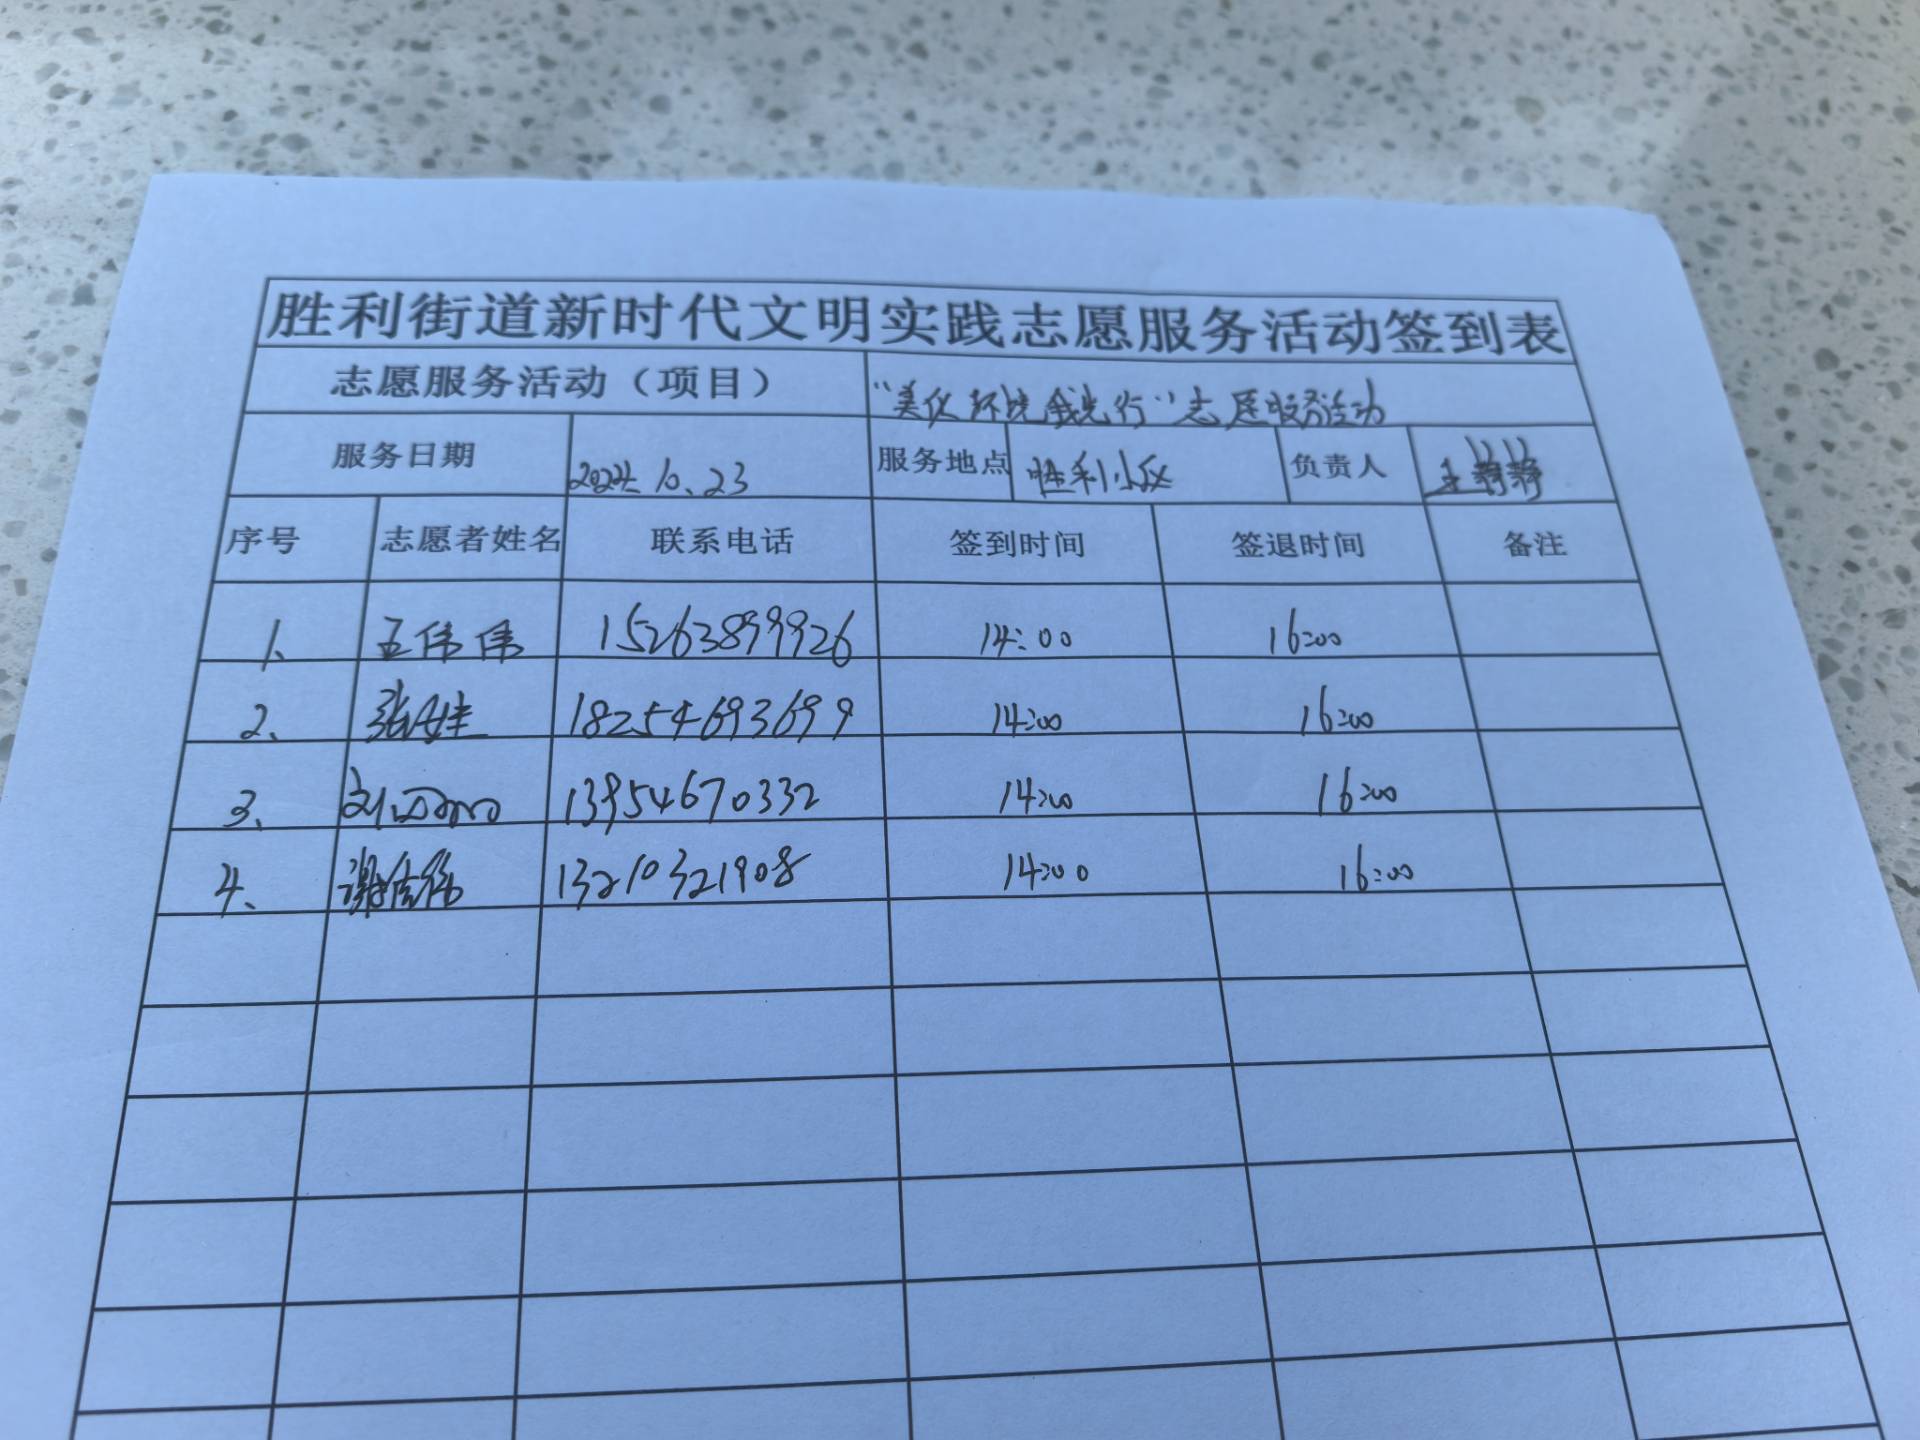 胜利街道新时代文明实践志愿服务活动签到表
志愿服务活动（项目） “美化环境 我先行”志愿服务活动
服务日期 2024.10.23 服务地点 胜利小区 负责人
序号 志愿者姓名 联系电话 签到时间 签退时间 备注
1、 王伟伟 15263899926 14:00 16:00
2、 张 18254693699 14:00 16:00
3、 刘 13954670332 14:00 16:00
4、 谢 13210321908 14:00 16:00